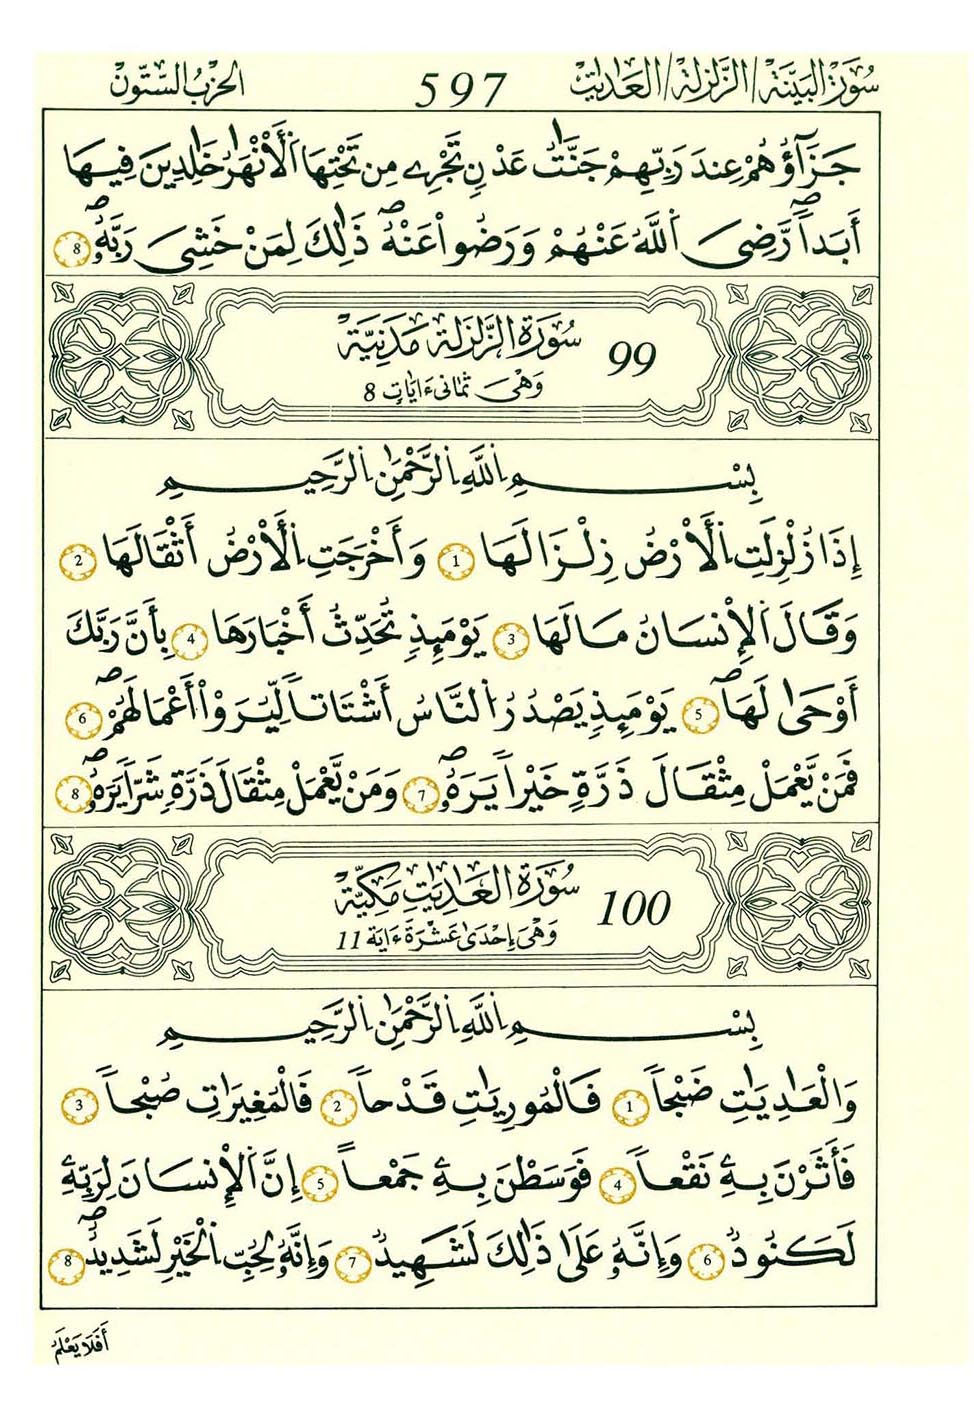 سُورَةُ البَيِّنَة/الزَّلْزَلَة/العَادِيَات 597 الحِزْبُ السِّتُّونْ
جَزَآؤُهُمْ عِندَ رَبِّهِمْ جَنَّٰتُ عَدْنٍ تَجْرِے مِن تَحْتِهَا اَ۬لَانْهَٰرُ خَٰلِدِينَ فِيهَا
أَبَداٗ رَّضِيَ اَ۬للَّهُ عَنْهُمْ وَرَضُواْ عَنْهُۖ ذَٰلِكَ لِمَنْ خَشِيَ رَبَّهُۥۖ 8
سُورَةُ الزَّلْزَلَة مَدَنِيَّة 99
وَهْيَ ثَمَانِي ءَايَاتٍ 8
بِسْمِ اِ۬للَّهِ اِ۬لرَّحْمَٰنِ اِ۬لرَّحِيمِ
إِذَا زُلْزِلَتِ اِ۬لَارْضُ زِلْزَالَهَا 1 وَأَخْرَجَتِ اِ۬لَارْضُ أَثْقَالَهَا 2
وَقَالَ اَ۬لِانسَانُ مَا لَهَا 3 يَوْمَئِذٖ تُحَدِّثُ أَخْبَارَهَا 4 بِأَنَّ رَبَّكَ
أَوْحَىٰ لَهَاۖ 5 يَوْمَئِذٖ يَصْدُرُ اُ۬لنَّاسُ أَشْتَاتاٗ لِّيُرَوْاْ أَعْمَٰلَهُمْۖ 6
فَمَنْ يَّعْمَلْ مِثْقَالَ ذَرَّةٍ خَيْراٗ يَرَهُۥۖ 7 وَمَنْ يَّعْمَلْ مِثْقَالَ ذَرَّةٖ شَرّاٗ يَرَهُۥۖ 8
سُورَةُ العَادِيَاتِ مَكِّيَّة 100
وَهْيَ إِحْدَىٰ عَشْرَةَ ءَايَة 11
بِسْمِ اِ۬للَّهِ اِ۬لرَّحْمَٰنِ اِ۬لرَّحِيمِ
وَالْعَٰدِيَٰتِ ضَبْحاٗ 1 فَالْمُورِيَٰتِ قَدْحاٗ 2 فَالْمُغِيرَٰتِ صُبْحاٗ 3
فَأَثَرْنَ بِهِۦ نَقْعاٗ 4 فَوَسَطْنَ بِهِۦ جَمْعاً 5 إِنَّ اَ۬لِانسَانَ لِرَبِّهِۦ
لَكَنُودٞ 6 وَإِنَّهُۥ عَلَىٰ ذَٰلِكَ لَشَهِيدٞ 7 وَإِنَّهُۥ لِحُبِّ اِ۬لْخَيْرِ لَشَدِيدٌۖ 8
أَفَلَا يَعْلَمُ